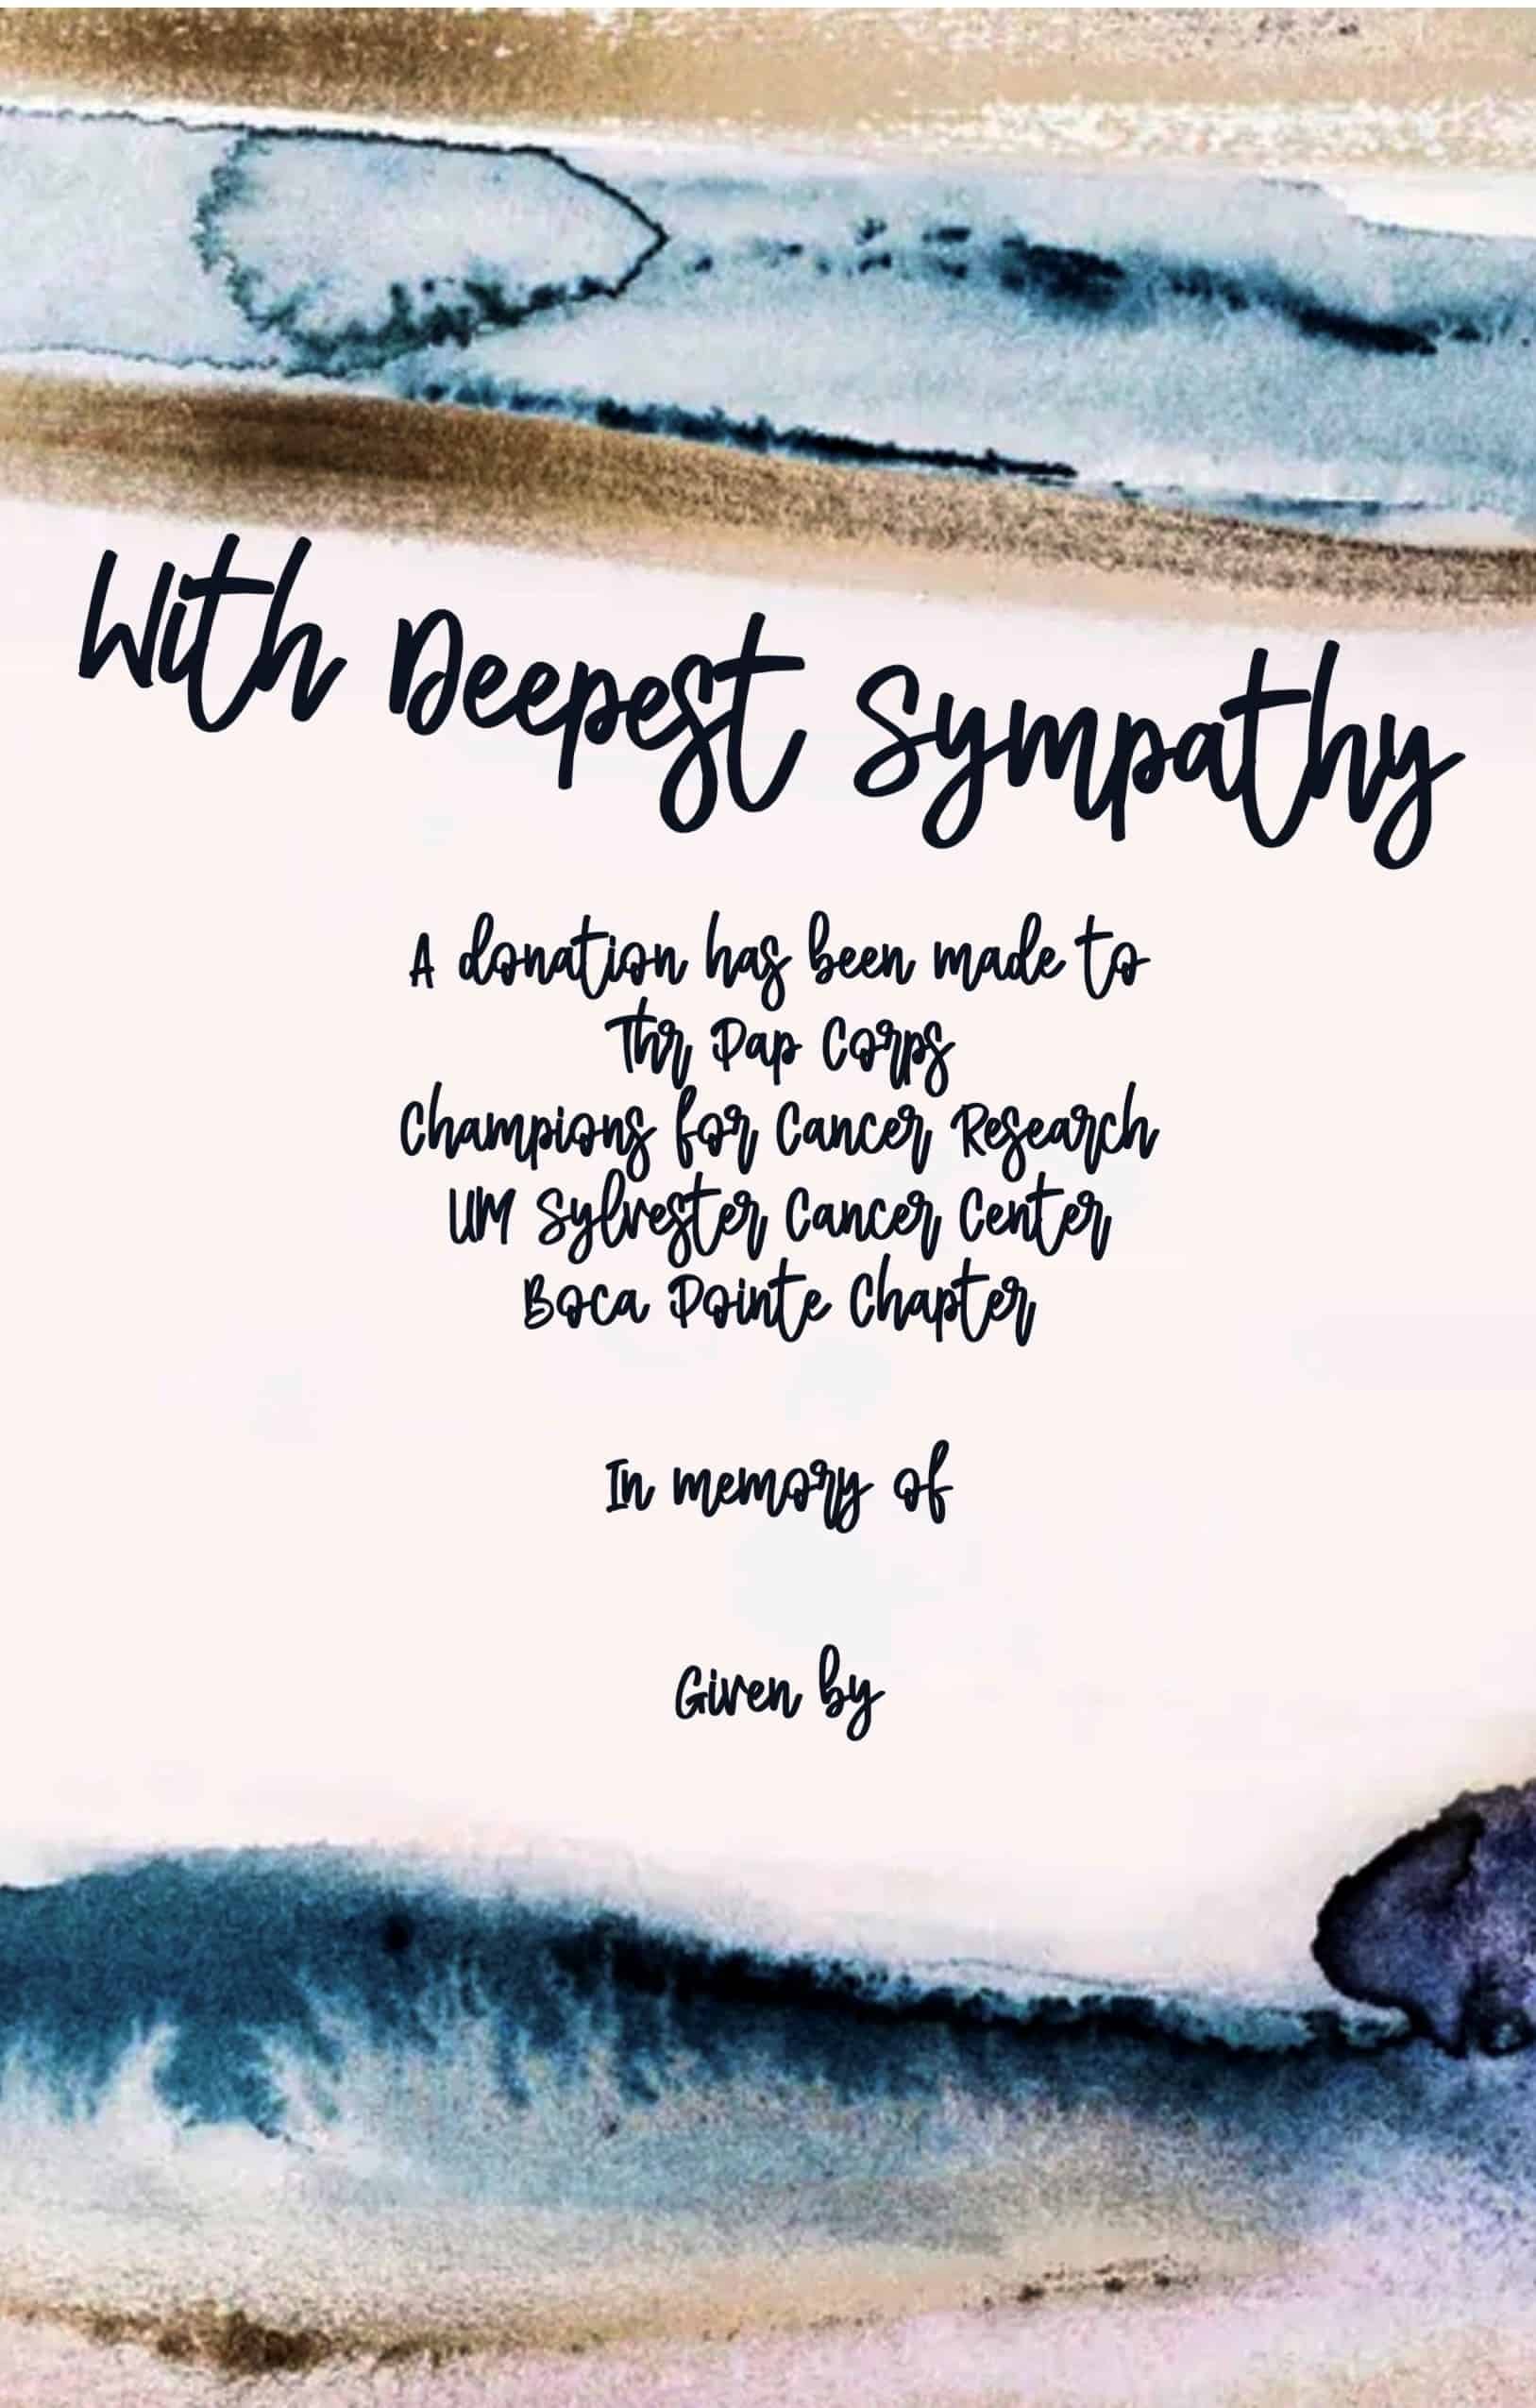 With Deepest Sympathy
A donation has been made to
Thr Pap Corps
Champions for Cancer Research
UM Sylvester Cancer Center
Boca Pointe Chapter
In memory of
Given by